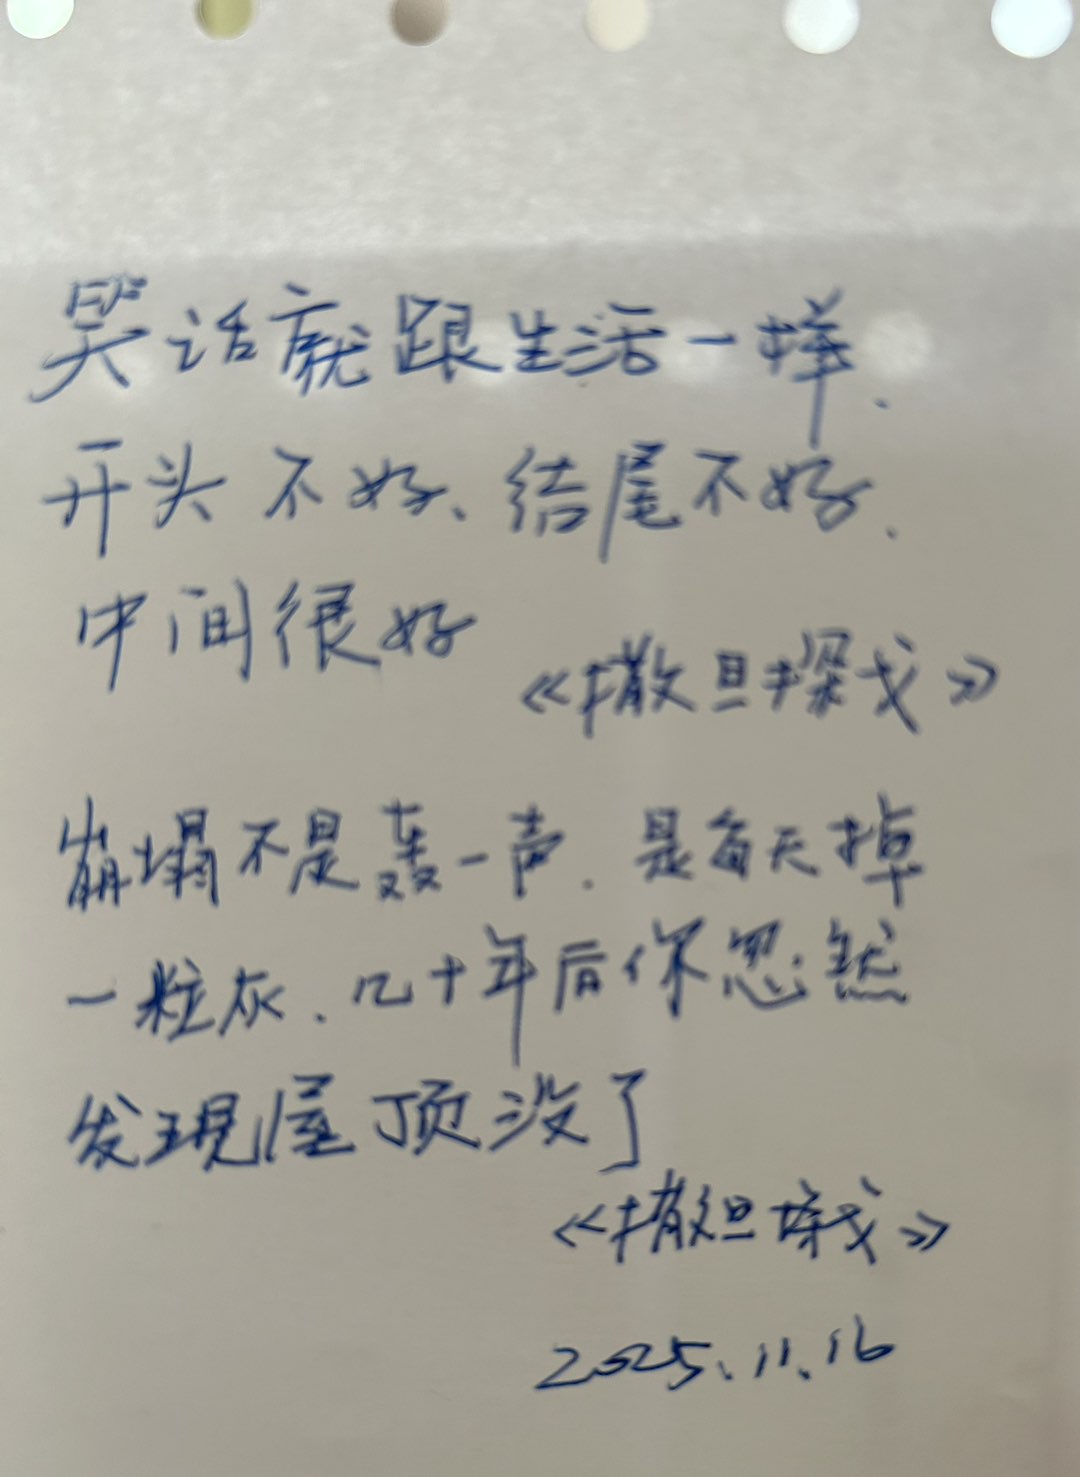 笑话就跟生活一样.
开头不好、结尾不好.
中间很好
《撒旦探戈》
崩塌不是轰一声.是每天掉
一粒灰.几十年后你忽然
发现屋顶没了
《撒旦探戈》
2025.11.16